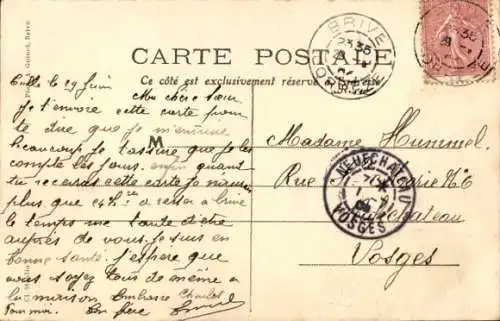 CARTE POSTALE
Ce côté est exclusivement réservé
BRIVE
le 29 Juin
Ma chère sœur
je t'envoie cette carte pour
te dire que je m'ennuie
beaucoup je t'assure que je les
compte les jours. enfin quant
tu recevras cette carte je n'aurai
plus que 24h à rester a brive
le temps me tarde d'être
auprès de vous. je suis en
bonne santé. j'espère que
vous soyez tous de même a
la maison Embrasse Charlot
Pour moi. Ton frère
M
Madame Hummel
Rue N° 6
Neufchateau
Vosges
NEUFCHATEAU
VOSGES